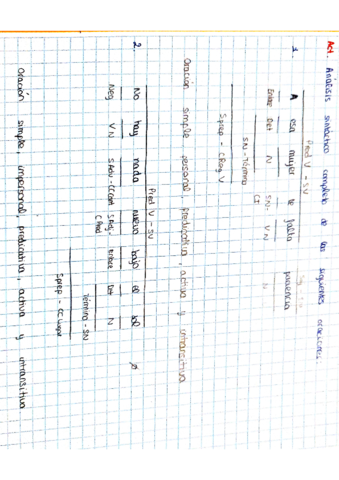 Act. Análisis sintáctico completo de las siguientes oraciones:
Pred V - SV
1. A esa mujer le falta paciencia
Enlace Det N SN- V N N
CI
SN - Término
Sprep - C Reg V
Oración simple, personal, predicativa, activa y intransitiva
Pred V - SV
2. No hay nada nuevo bajo el sol Ø
Neg V N S Adv - CCcant S Adj. Enlace Det N
C Pred
Término - SN
Sprep - CC Lugar
Oración simple, impersonal, predicativa, activa y intransitiva